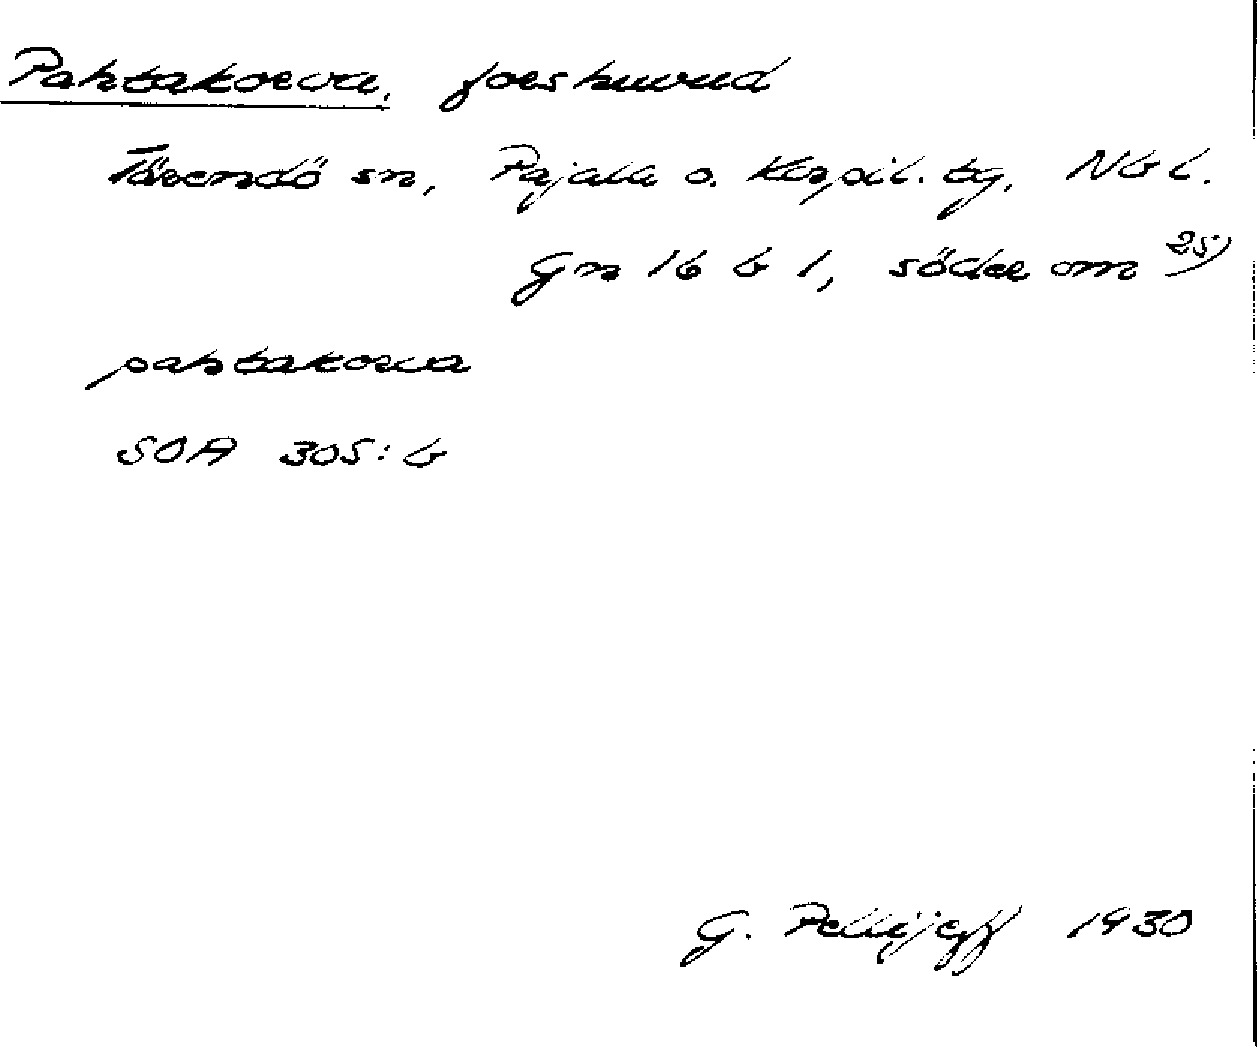 Pahtakorva, forshuvud
Tärendö sn, Pajala o. Korpil. tg, Nb l.
Gn 16 b 1, söder om 25)
pahtakorva
SOA 305: b
G. Pellijeff 1930